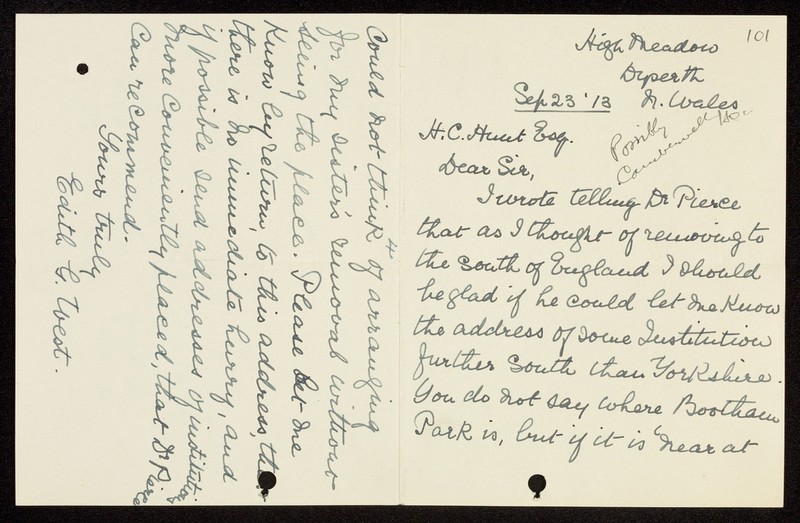 101
High Meadow
Dyserth
Sep 23 '13 N. Wales
Possibly
Camberwell Ho.
H. C. Hunt Esq.
Dear Sir,
I wrote telling Dr Pierce
that as I thought of removing to
the South of England I should
be glad if he could let me know
the address of some Institution
further South than Yorkshire.
You do not say where Bootham
Park is, but if it is "near at
4
Could not think of arranging
for my sister's removal without
seeing the place. Please let me
know by return, to this address, that
there is no immediate hurry, and
if possible send addresses of institutions
more conveniently placed, that Dr Pierce
can recommend.
Yours truly
Edith G. West.